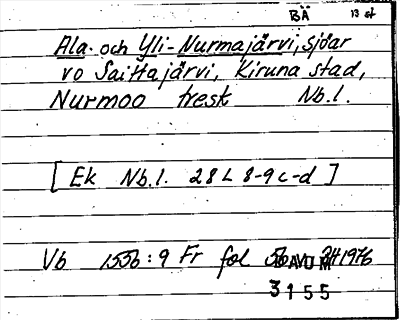 BÄ 13 st
Ala- och Yli-Nurmajärvi, sjöar
vo Saittajärvi, Kiruna stad,
Nurmoo tresk Nb.l.
[ Ek Nb.l. 28 L 8-9 c-d ]
Vb 1556:9 Fr fol 1976
3155